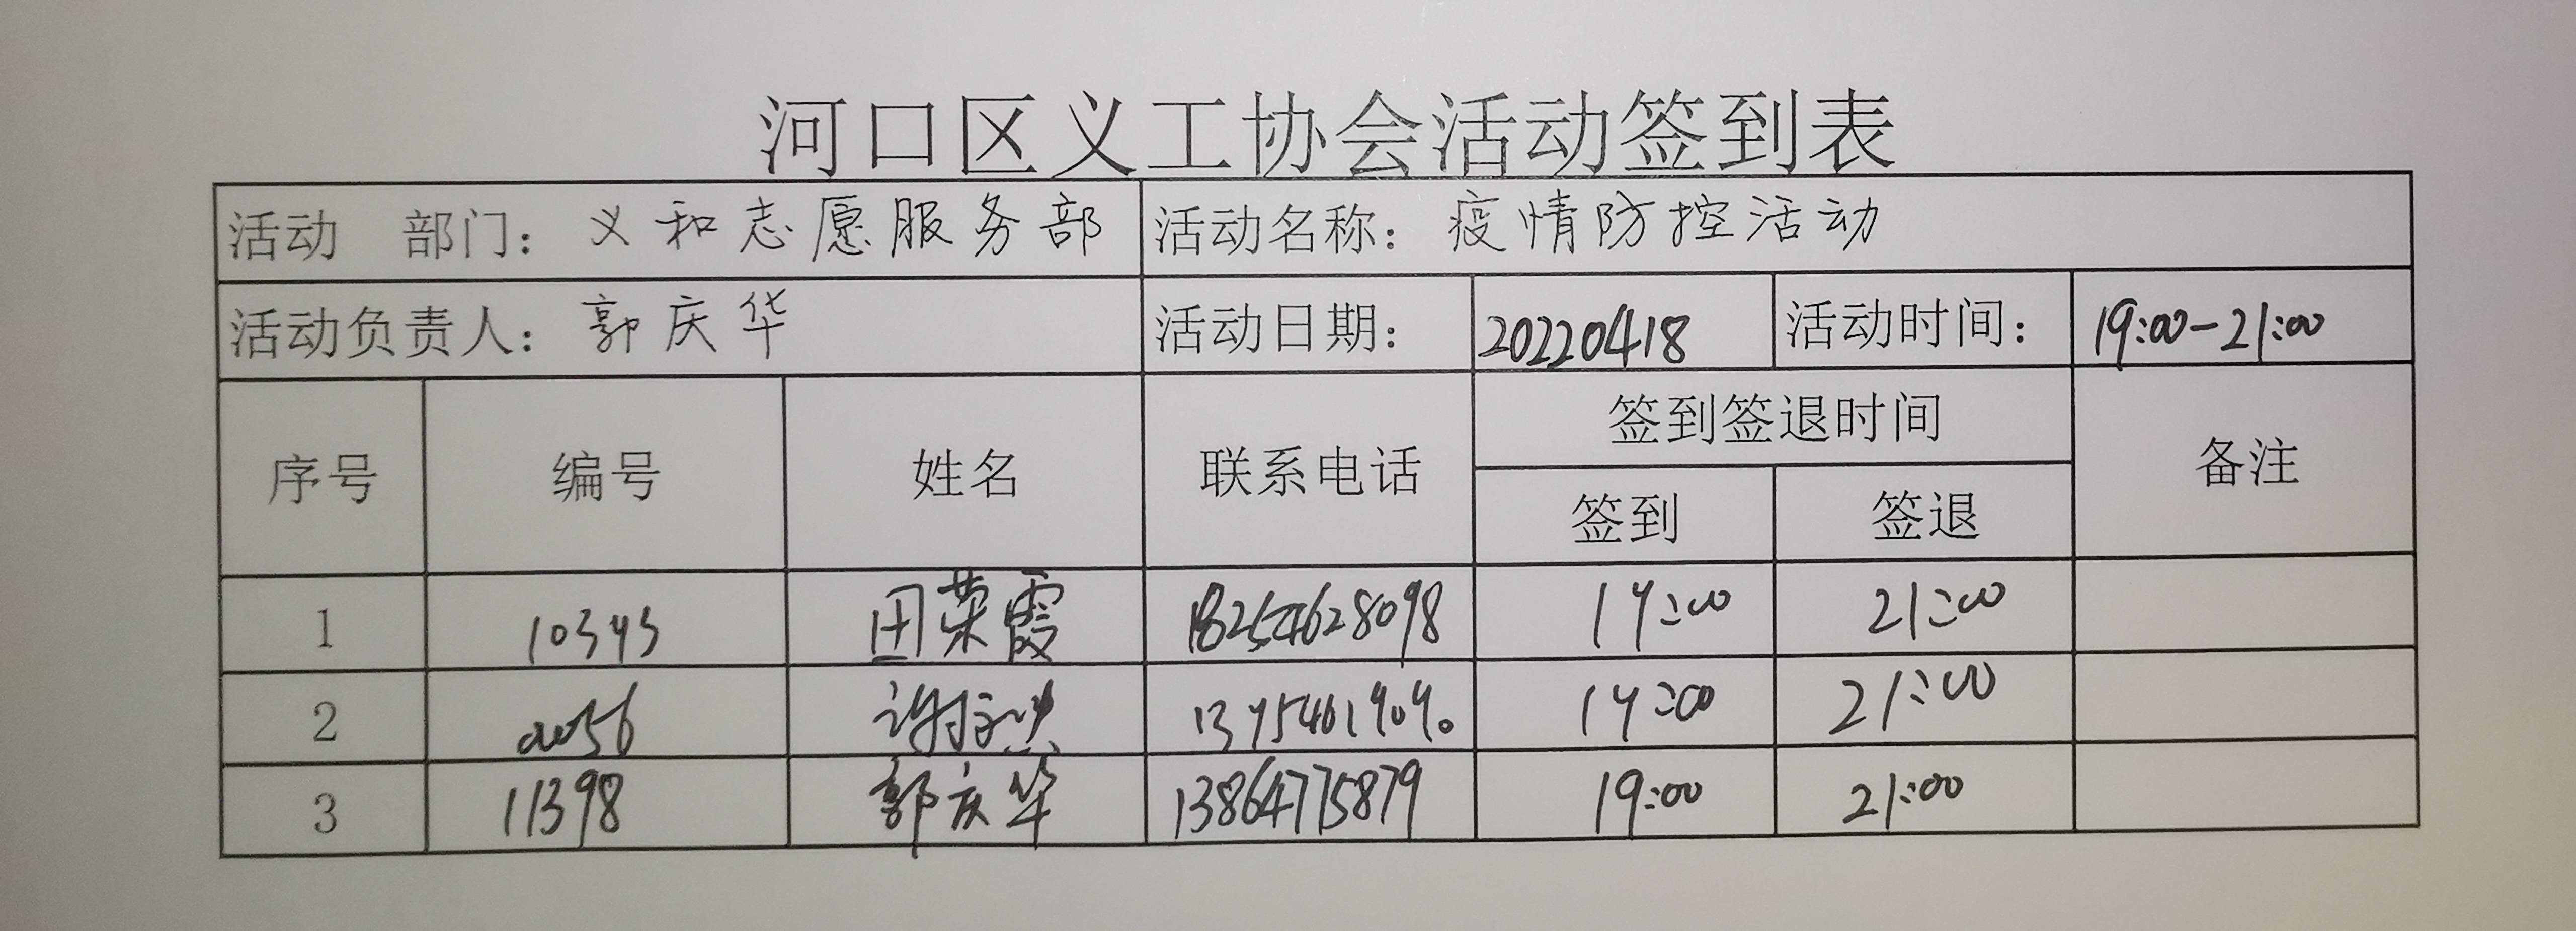 河口区义工协会活动签到表
活动 部门：义和志愿服务部 活动名称：疫情防控活动
活动负责人：郭庆华 活动日期： 20220418 活动时间： 19:00-21:00
序号 编号 姓名 联系电话 签到签退时间 备注
签到 签退
1 10343 田荣霞 18254628098 19:00 21:00
2 21:00
3 11398 郭庆华 13864775879 19:00 21:00